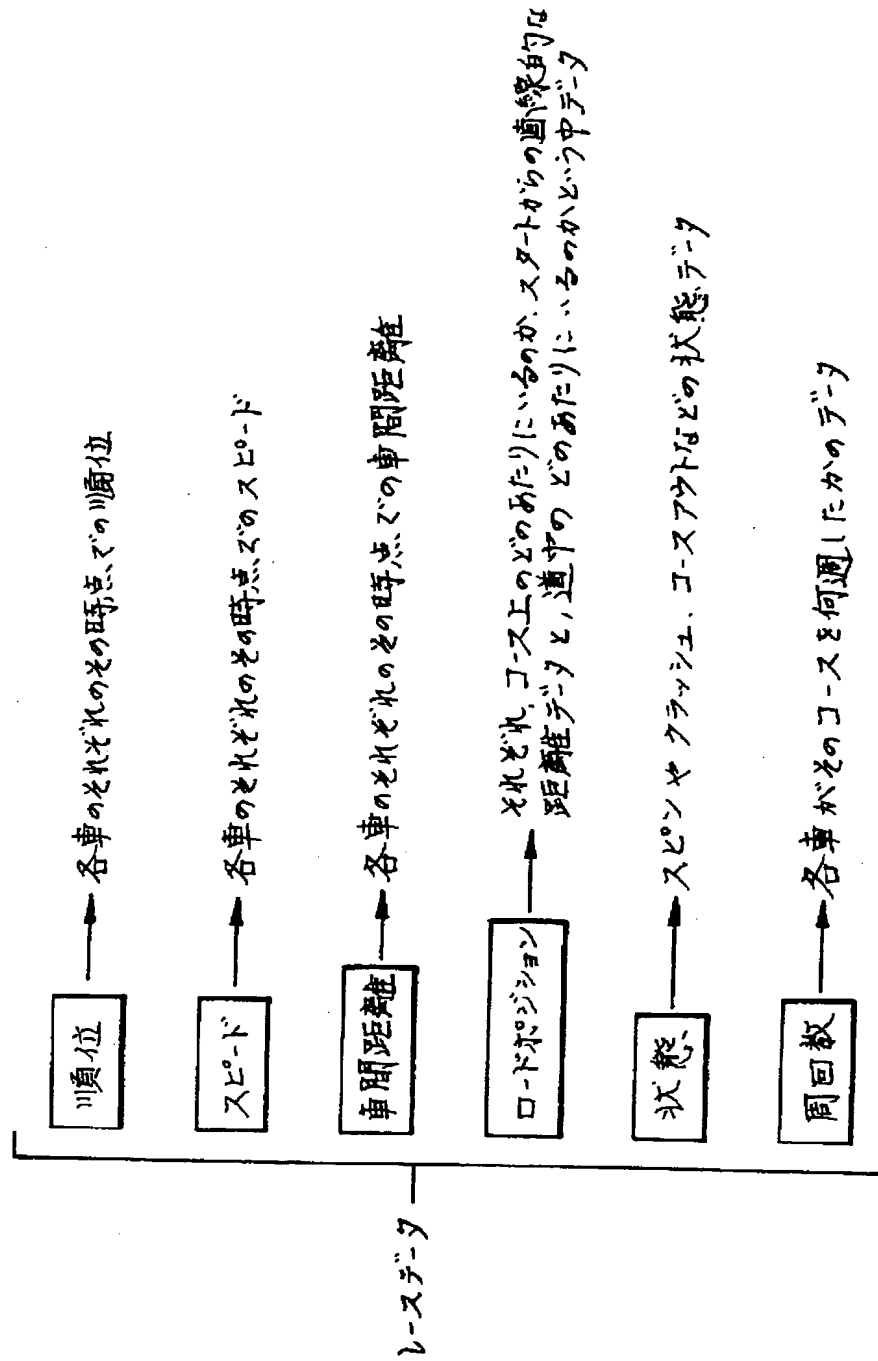 レースデータ
順位
各車のそれぞれのその時点での順位
スピード
各車のそれぞれのその時点でのスピード
車間距離
各車のそれぞれのその時点での車間距離
ロードポジション
それぞれ、コース上のどのあたりにいるのか、スタートからの直線的な
距離データと、道中のどのあたりにいるのかという中データ
状態
スピンやクラッシュ、コースアウトなどの状態データ
周回数
各車がそのコースを何週したかのデータ